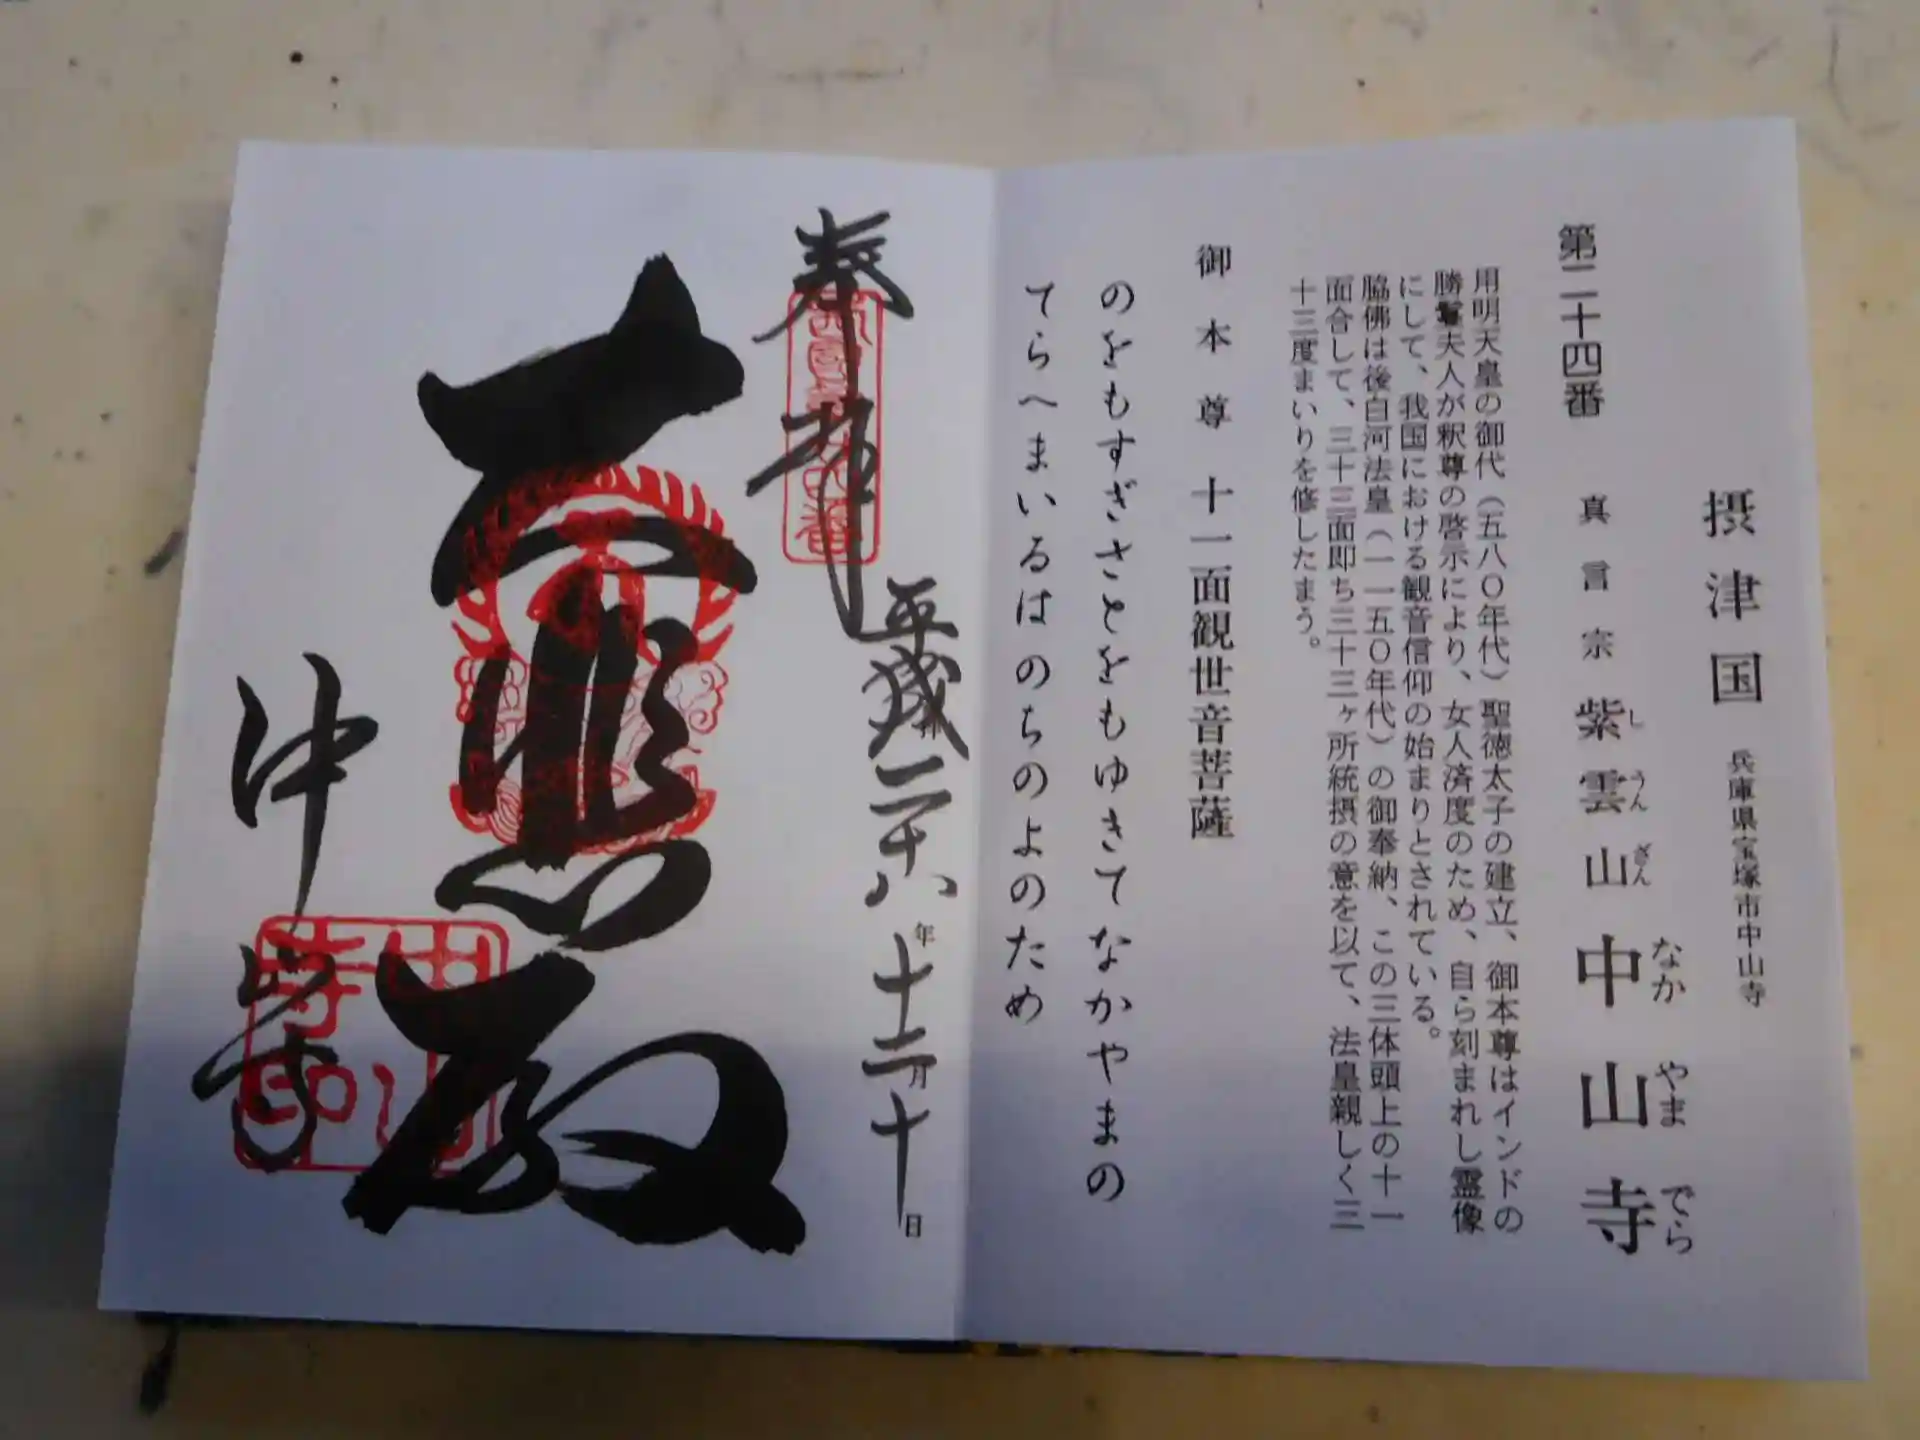 摂津国 兵庫県宝塚市中山寺
第二十四番 真言宗 紫雲山 中山寺
し うん ざん なか やま でら
用明天皇の御代（五八〇年代）聖徳太子の建立、御本尊はインドの
勝鬘夫人が釈尊の啓示により、女人済度のため、自ら刻まれし霊像
にして、我国における観音信仰の始まりとされている。
脇佛は後白河法皇（一一五〇年代）の御奉納、この三体頭上の十一
面合して、三十三面即ち三十三ヶ所統摂の意を以て、法皇親しく三
十三度まいりを修したまう。
御本尊 十一面観世音菩薩
のをもすぎさとをもゆきてなかやまの
てらへまいるはのちのよのため
奉拝
平成二十八年十二月十日
大悲殿
中山寺
中山寺印